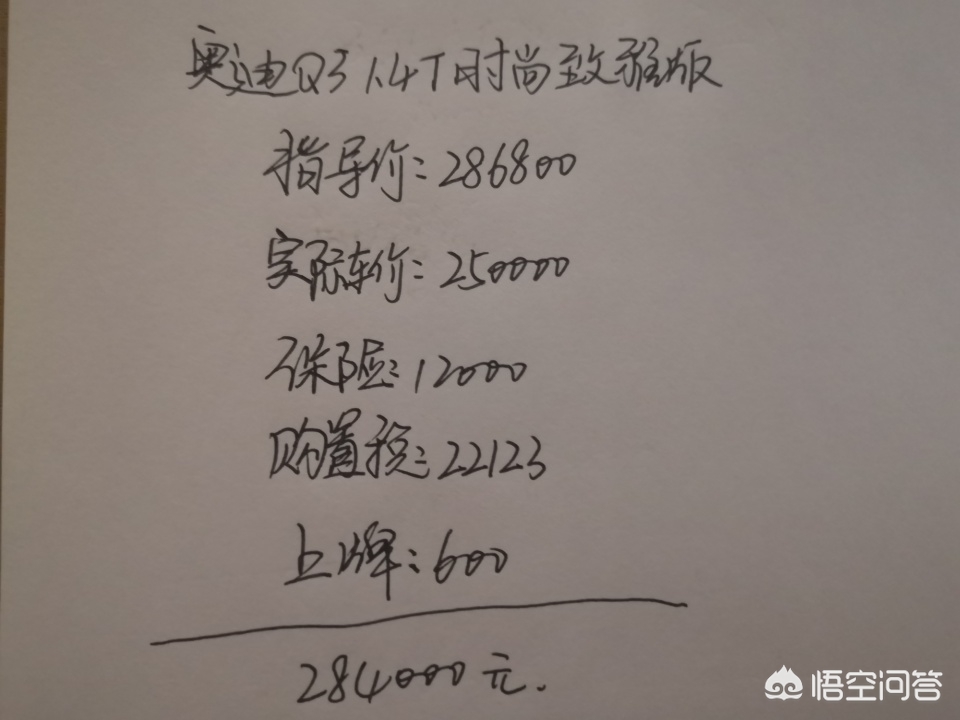 奥迪Q3 1.4T时尚致雅版
指导价:286800
实际车价:250000
保险:12000
购置税:22123
上牌:600
284000元.
悟空问答